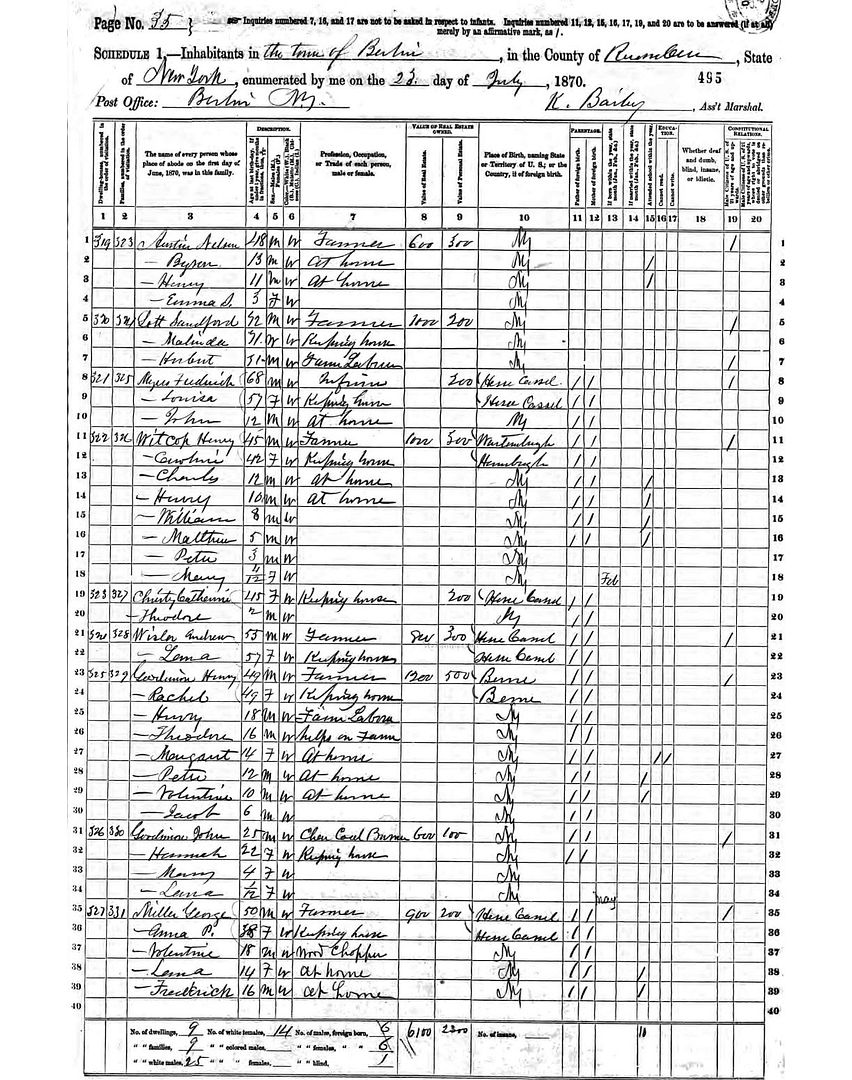 Page No. 35
Inquiries numbered 7, 16, and 17 are not to be asked in respect to infants. Inquiries numbered 11, 12, 15, 16, 17, 19, and 20 are to be answered (if at all) merely by an affirmative mark, as /.
SCHEDULE 1.—Inhabitants in the town of Berlin, in the County of, State
of New York, enumerated by me on the 23 day of July, 1870. 495
Post Office: Berlin Ny. K. Bailey, Ass't Marshal.
DESCRIPTION. VALUE OF REAL ESTATE OWNED. PARENTAGE. EDUCATION. CONSTITUTIONAL RELATIONS.
Dwelling-houses, numbered in the order of visitation.
Families, numbered in the order of visitation.
The name of every person whose place of abode on the first day of June, 1870, was in this family.
Profession, Occupation, or Trade of each person, male or female.
Value of Real Estate.
Value of Personal Estate.
Place of Birth, naming State or Territory of U. S.; or the Country, if of foreign birth.
Father of foreign birth.
Mother of foreign birth.
Attended school within the year.
Cannot read.
Cannot write.
Whether deaf and dumb, blind, insane, or idiotic.
1 2 3 4 5 6 7 8 9 10 11 12 13 14 15 16 17 18 19 20
1 319 323 Austin Nelson 48 m W Farmer 600 300 Ny / 1
2 — Byron 13 m W At home Ny / 2
3 — Henry 11 m W At home Ny / 3
4 — Emma S. 3 F W Ny 4
5 320 324 Sandford M W Farmer 1000 200 Ny / 5
6 — Malinda W Keeping house Ny 6
7 — Hubert M W Farm Laborer Ny / 7
8 321 325 Fredrick 68 m W Infirm 200 Hesse Cassel / / / 8
9 — Louisa 57 F W Keeping house Hesse Cassel / / 9
10 — John 12 M W At home Ny / / 10
11 322 326 Witcop Henry 45 m W Farmer 1000 300 / / / 11
12 — 42 F W Keeping house / / 12
13 — Charles 12 m W At home Ny / / / 13
14 — Henry 10 m W At home Ny / / / 14
15 — William 8 m W Ny / / / 15
16 — Matthew 5 m W Ny / / / 16
17 — Peter 3 m W Ny 17
18 — Mary F W Ny Feb 18
19 323 327 Christy Catherine 45 F W Keeping house 200 Hesse Cassel / / 19
20 — Theodore m W Ny / / 20
21 324 328 Andrew 55 m W Farmer 800 300 Hesse Cassel / / / 21
22 — Lena 57 F W Keeping house Hesse Cassel / / 22
23 325 329 Henry 49 M W Farmer 1200 500 Berne / / / 23
24 — Rachel 49 F W Keeping house Berne / / 24
25 — Henry 18 M W Farm Labor Ny / / 25
26 — Theodore 16 m W helps on Farm Ny / / 26
27 — Margaret 14 F W At home Ny / / / / 27
28 — Peter 12 m W At home Ny / / / 28
29 — Volentine 10 m W At home Ny / / / 29
30 — Jacob 6 m W Ny / / 30
31 326 330 John 25 m W Coal Burner 600 100 Ny / / / 31
32 — Hannah 22 F W Keeping house Ny / / 32
33 — Mary 4 F W Ny 33
34 — Lena F W Ny May 34
35 327 331 Miller George 50 M W Farmer 900 200 Hesse Cassel / / / 35
36 — Anna P. 38 F W Keeping house Hesse Cassel / / 36
37 — Volentine 18 m W Wood Chopper Ny / / 37
38 — Lena 14 F W At home Ny / / / 38
39 — Frederick 16 m W At home Ny / / / 39
40 40
No. of dwellings, 9 No. of white females, 14 No. of males, foreign born, 6 6100 2300 No. of insane, 10
" " families, 9 " " colored males, " " females, " " 6
" " white males, 25 " " " females, " " blind, 1